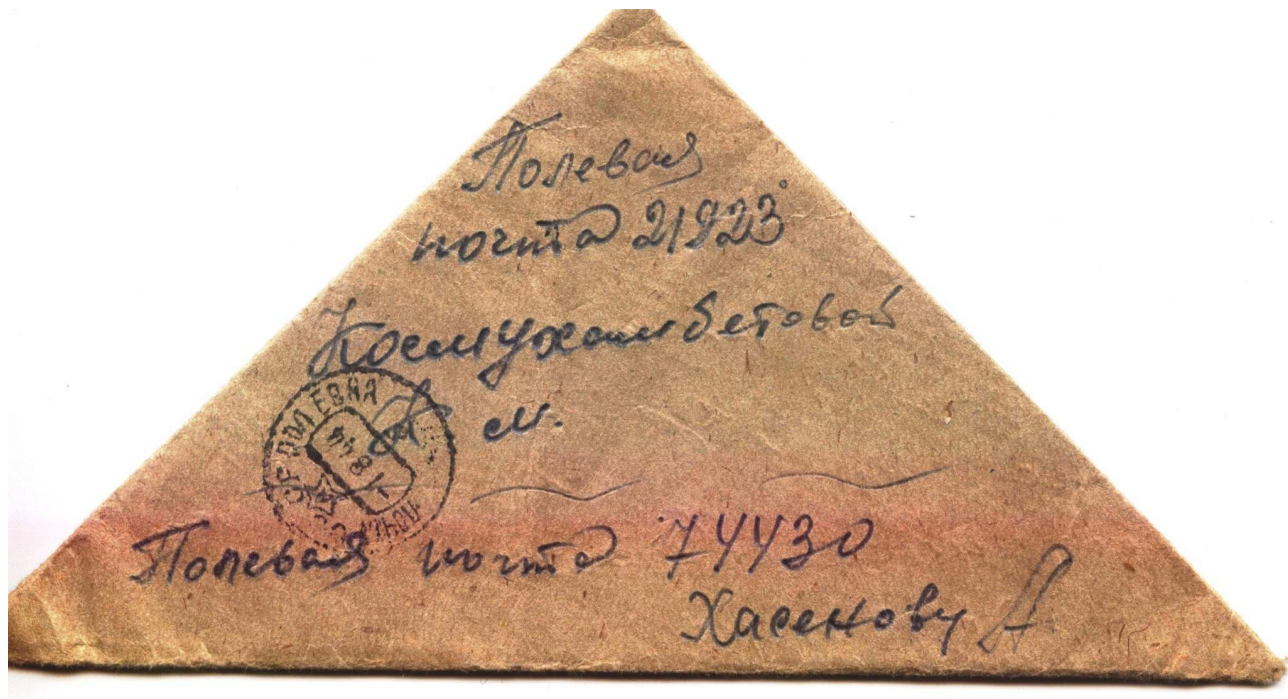 Полевая
почта 21923
Космухамбетовой
А м.
ПОЛЕВАЯ
Полевая почта 74430
Хасенову А